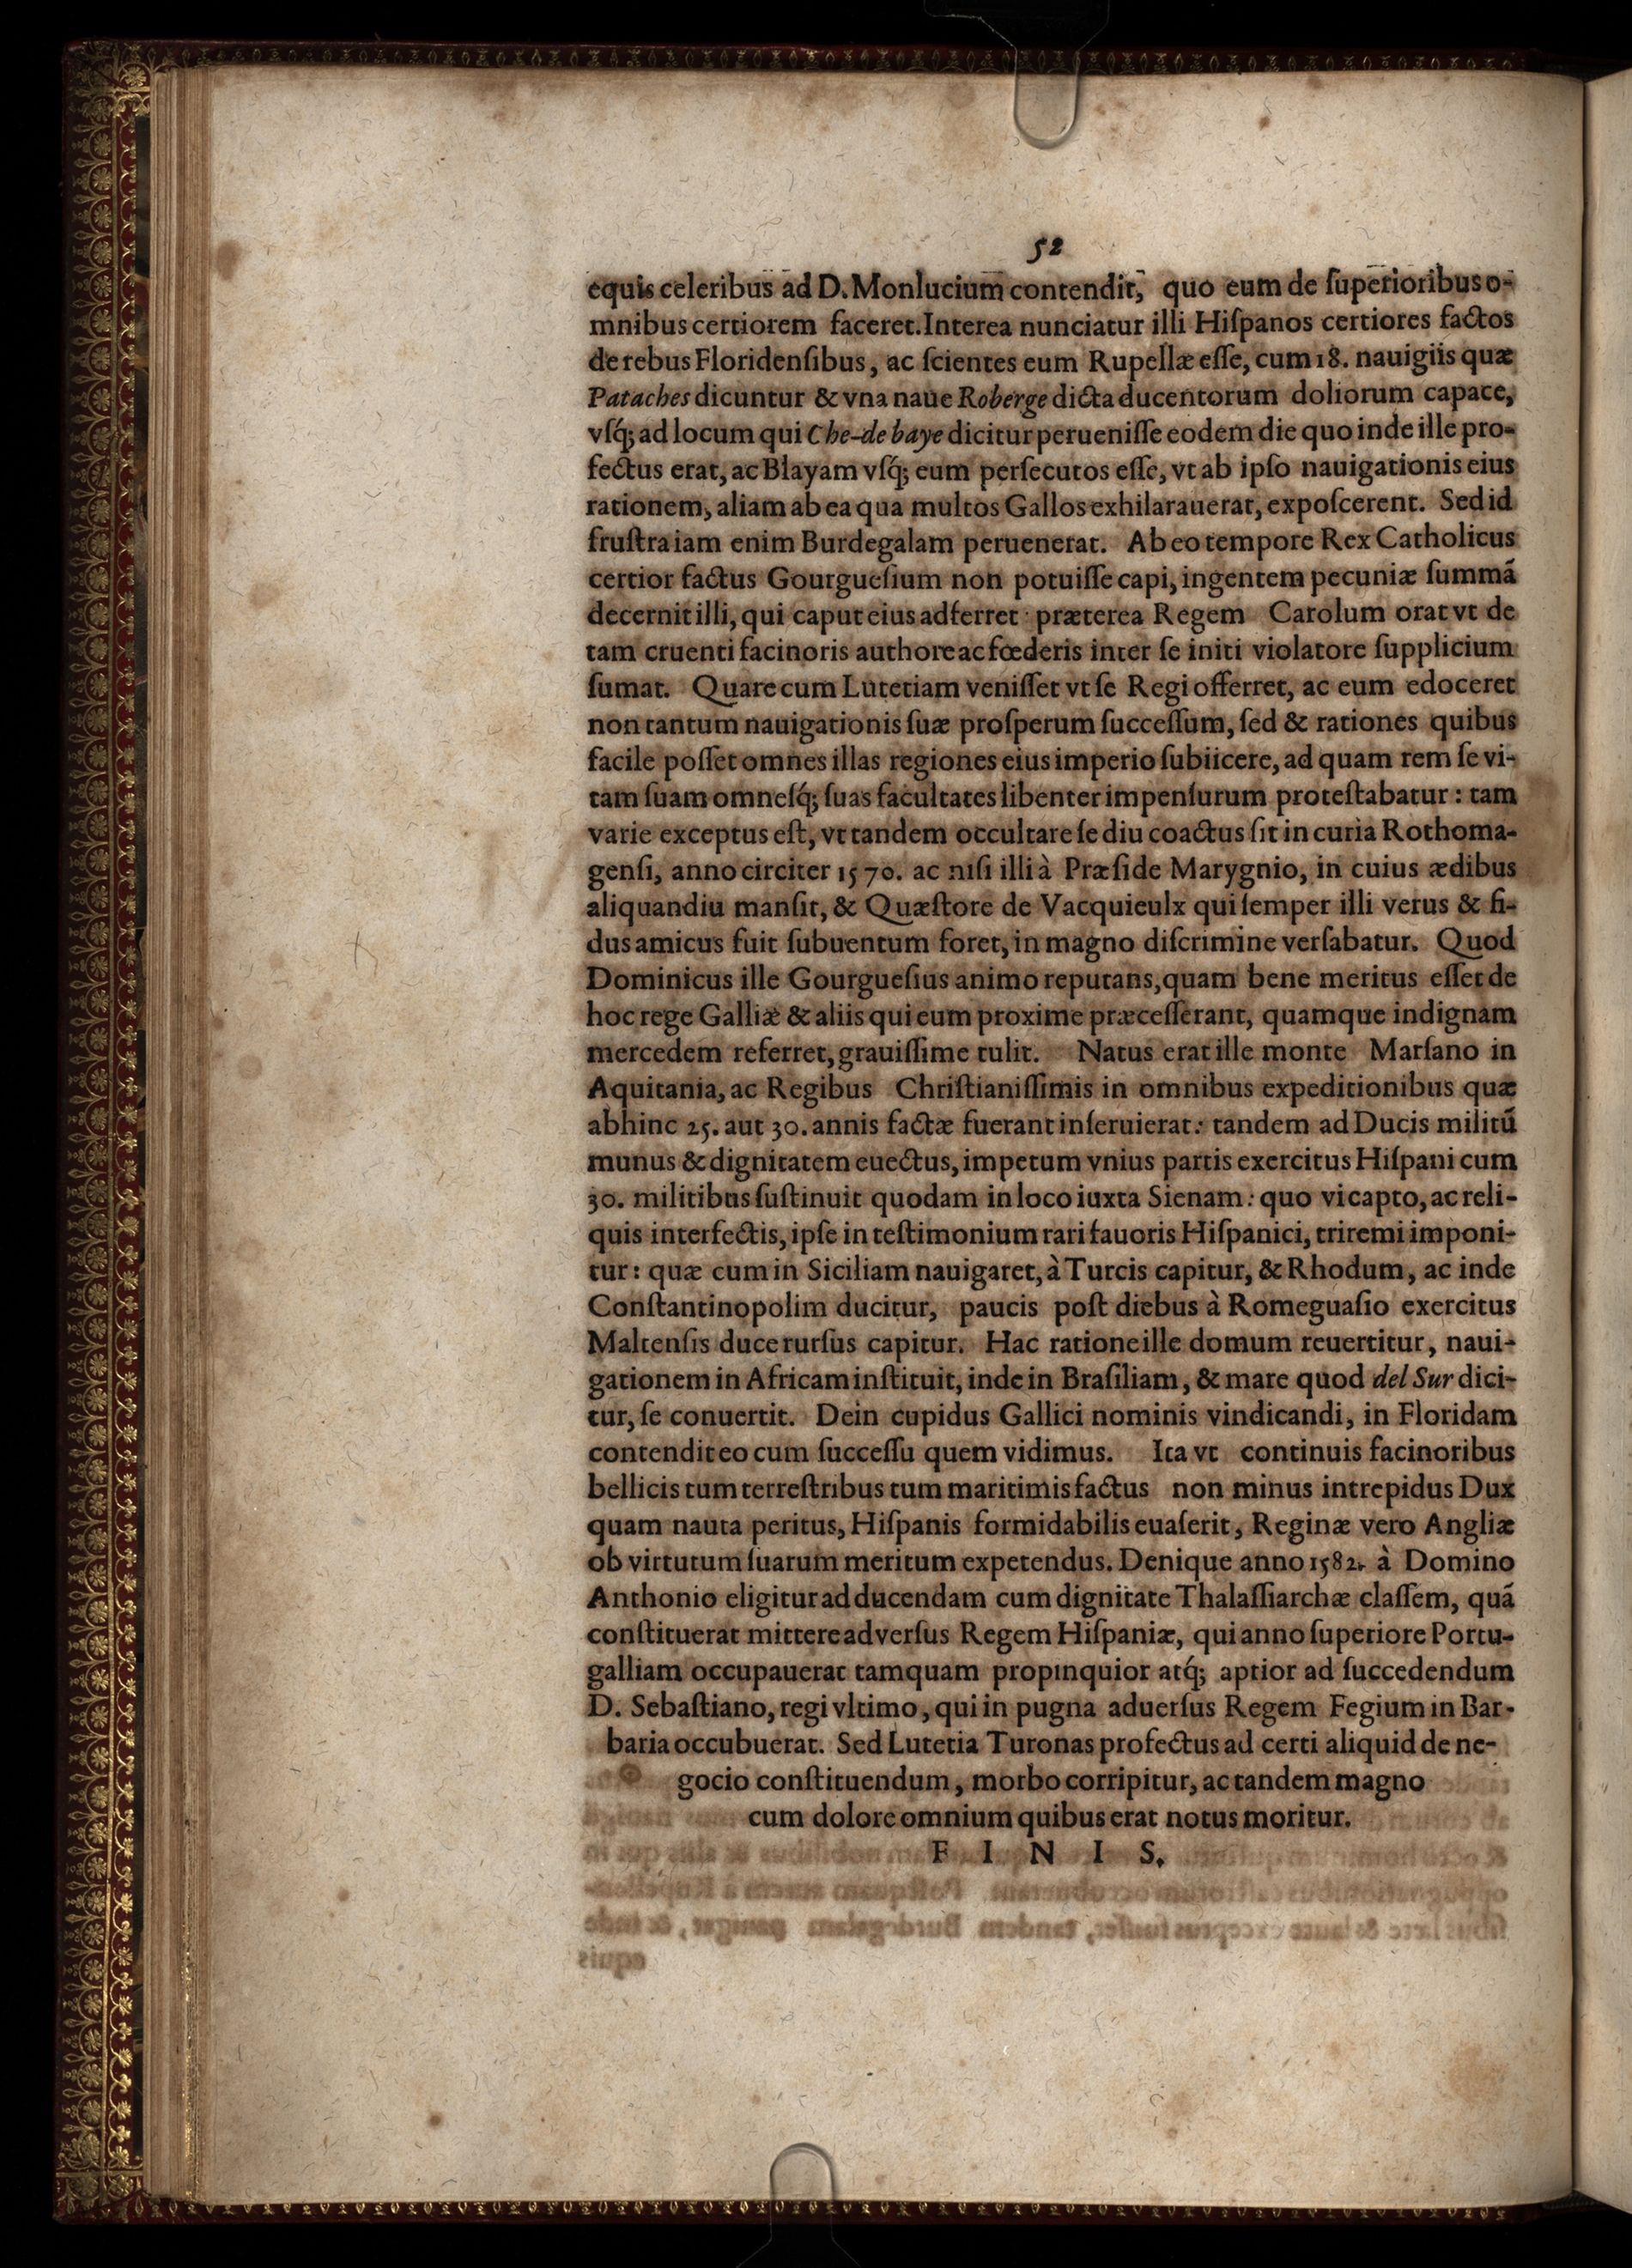 52
equis celeribus ad D. Monlucium contendit, quo eum de ſuperioribus o-
mnibus certiorem faceret. Interea nunciatur illi Hiſpanos certiores factos
de rebus Floridenſibus, ac ſcientes eum Rupellæ eſſe, cum 18. nauigiis quæ
Pataches dicuntur & vna naue Roberge dicta ducentorum doliorum capace,
vſq́; ad locum qui Che-de baye dicitur perueniſſe eodem die quo inde ille pro-
fectus erat, ac Blayam vſq́; eum perſecutos eſſe, vt ab ipſo nauigationis eius
rationem, aliam ab ea qua multos Gallos exhilarauerat, expoſcerent. Sed id
fruſtra iam enim Burdegalam peruenerat. Ab eo tempore Rex Catholicus
certior factus Gourgueſium non potuiſſe capi, ingentem pecuniæ ſummã
decernit illi, qui caput eius adferret: præterea Regem Carolum orat vt de
tam cruenti facinoris authore ac fœderis inter ſe initi violatore ſupplicium
ſumat. Quare cum Lutetiam veniſſet vt ſe Regi offerret, ac eum edoceret
non tantum nauigationis ſuæ proſperum ſucceſſum, ſed & rationes quibus
facile poſſet omnes illas regiones eius imperio ſubiicere, ad quam rem ſe vi-
tam ſuam omneſq́; ſuas facultates libenter impenſurum proteſtabatur: tam
varie exceptus eſt, vt tandem occultare ſe diu coactus ſit in curia Rothoma-
genſi, anno circiter 1570. ac niſi illi à Præſide Marygnio, in cuius ædibus
aliquandiu manſit, & Quæſtore de Vacquieulx qui ſemper illi verus & fi-
dus amicus fuit ſubuentum foret, in magno diſcrimine verſabatur. Quod
Dominicus ille Gourgueſius animo reputans, quam bene meritus eſſet de
hoc rege Galliæ & aliis qui eum proxime præceſſerant, quamque indignam
mercedem referret, grauiſſime tulit. Natus erat ille monte Marſano in
Aquitania, ac Regibus Chriſtianiſſimis in omnibus expeditionibus quæ
abhinc 25. aut 30. annis factæ fuerant inſeruierat: tandem ad Ducis militũ
munus & dignitatem euectus, impetum vnius partis exercitus Hiſpani cum
30. militibus ſuſtinuit quodam in loco iuxta Sienam: quo vi capto, ac reli-
quis interfectis, ipſe in teſtimonium rari fauoris Hiſpanici, triremi imponi-
tur: quæ cum in Siciliam nauigaret, à Turcis capitur, & Rhodum, ac inde
Conſtantinopolim ducitur, paucis poſt diebus à Romeguaſio exercitus
Maltenſis duce rurſus capitur. Hac ratione ille domum reuertitur, naui-
gationem in Africam inſtituit, inde in Braſiliam, & mare quod del Sur dici-
tur, ſe conuertit. Dein cupidus Gallici nominis vindicandi, in Floridam
contendit eo cum ſucceſſu quem vidimus. Ita vt continuis facinoribus
bellicis tum terreſtribus tum maritimis factus non minus intrepidus Dux
quam nauta peritus, Hiſpanis formidabilis euaſerit, Reginæ vero Angliæ
ob virtutum ſuarum meritum expetendus. Denique anno 1582. à Domino
Anthonio eligitur ad ducendam cum dignitate Thalaſſiarchæ claſſem, quã
conſtituerat mittere adverſus Regem Hiſpaniæ, qui anno ſuperiore Portu-
galliam occupauerat tamquam propinquior atq́; aptior ad ſuccedendum
D. Sebaſtiano, regi vltimo, qui in pugna aduerſus Regem Fegium in Bar-
baria occubuerat. Sed Lutetia Turonas profectus ad certi aliquid de ne-
gocio conſtituendum, morbo corripitur, ac tandem magno
cum dolore omnium quibus erat notus moritur.
F I N I S.